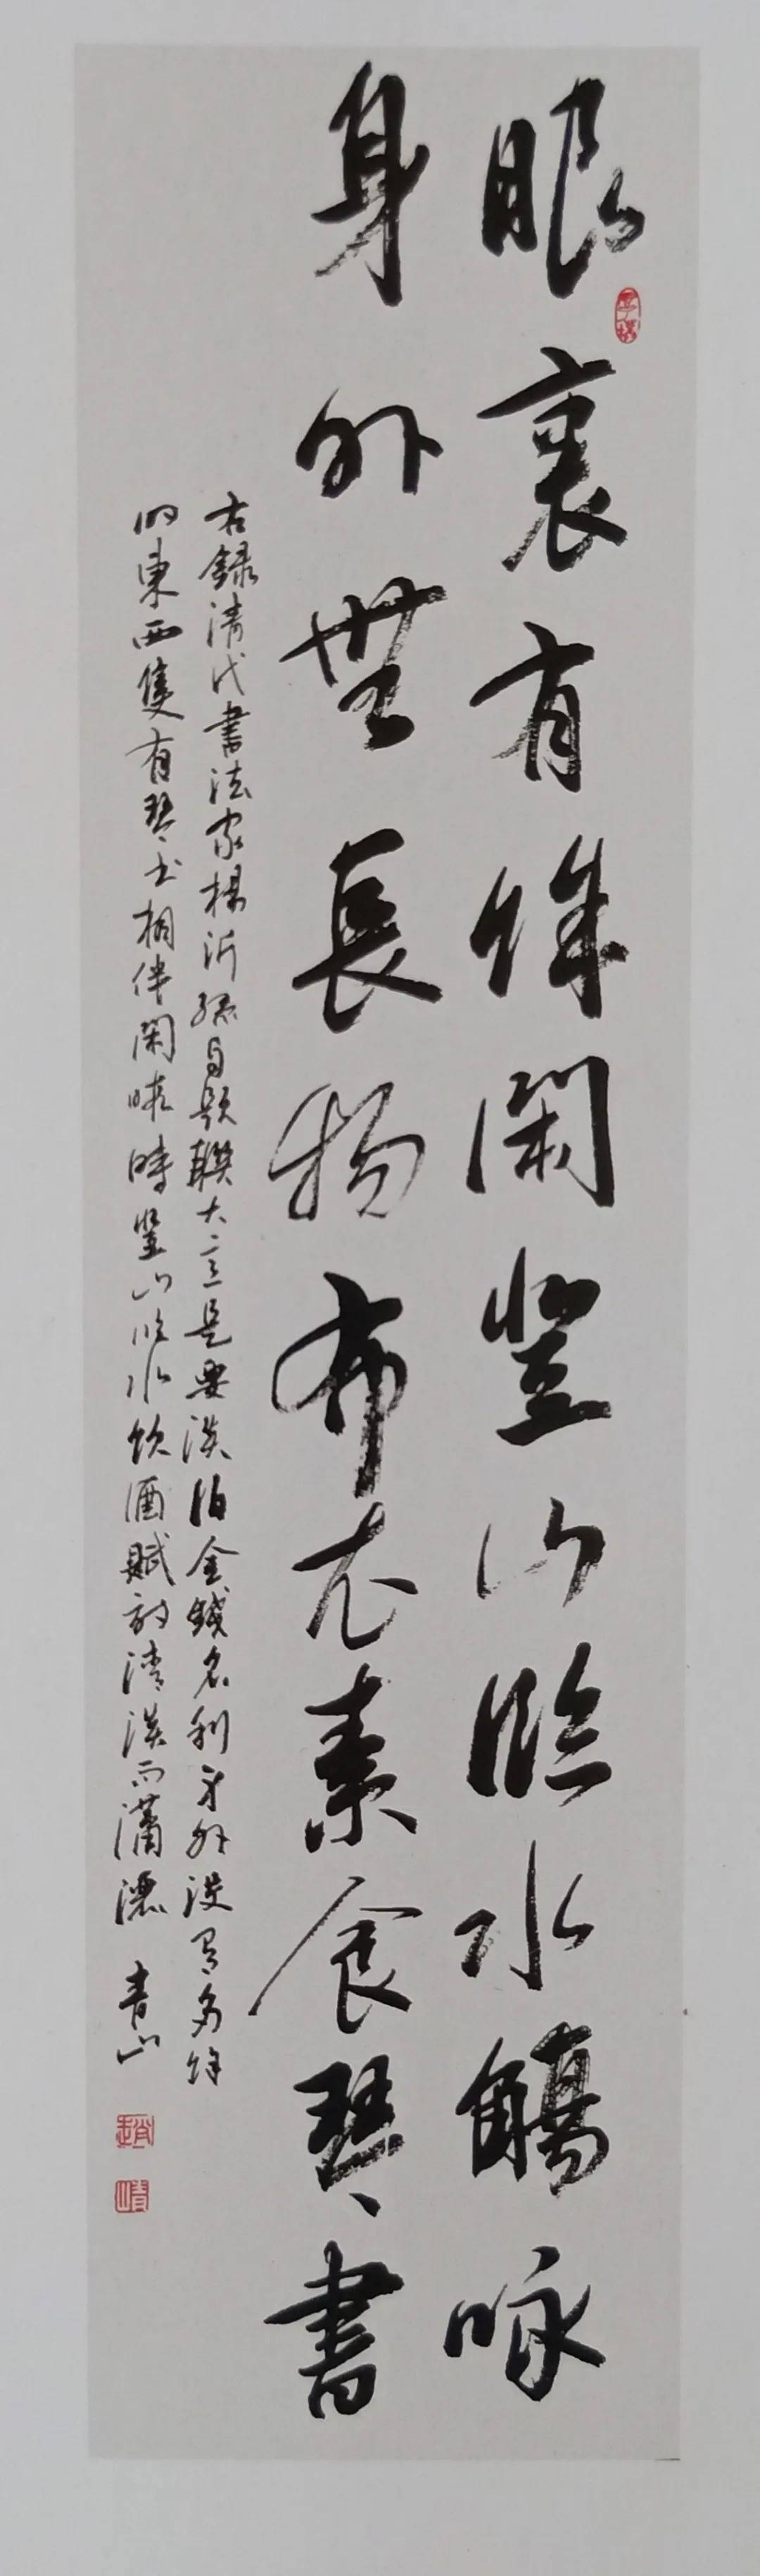 眼裏有餘閑登山臨水觴咏
身外無長物布衣素食琴書
右録清代書法家楊沂孫自題聯大意是要淡泊金錢名利身外没有多餘
的東西隻有琴書相伴閑暇時登山臨水飲酒賦詩清淡而瀟灑 青山
趙
青山